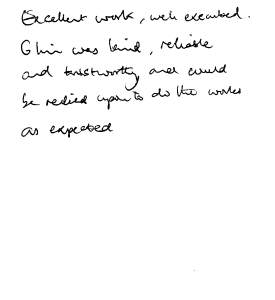 Excellent work, well executed.
Glin was kind, reliable
and trustworthy and could
be relied upon to do the works
as expected